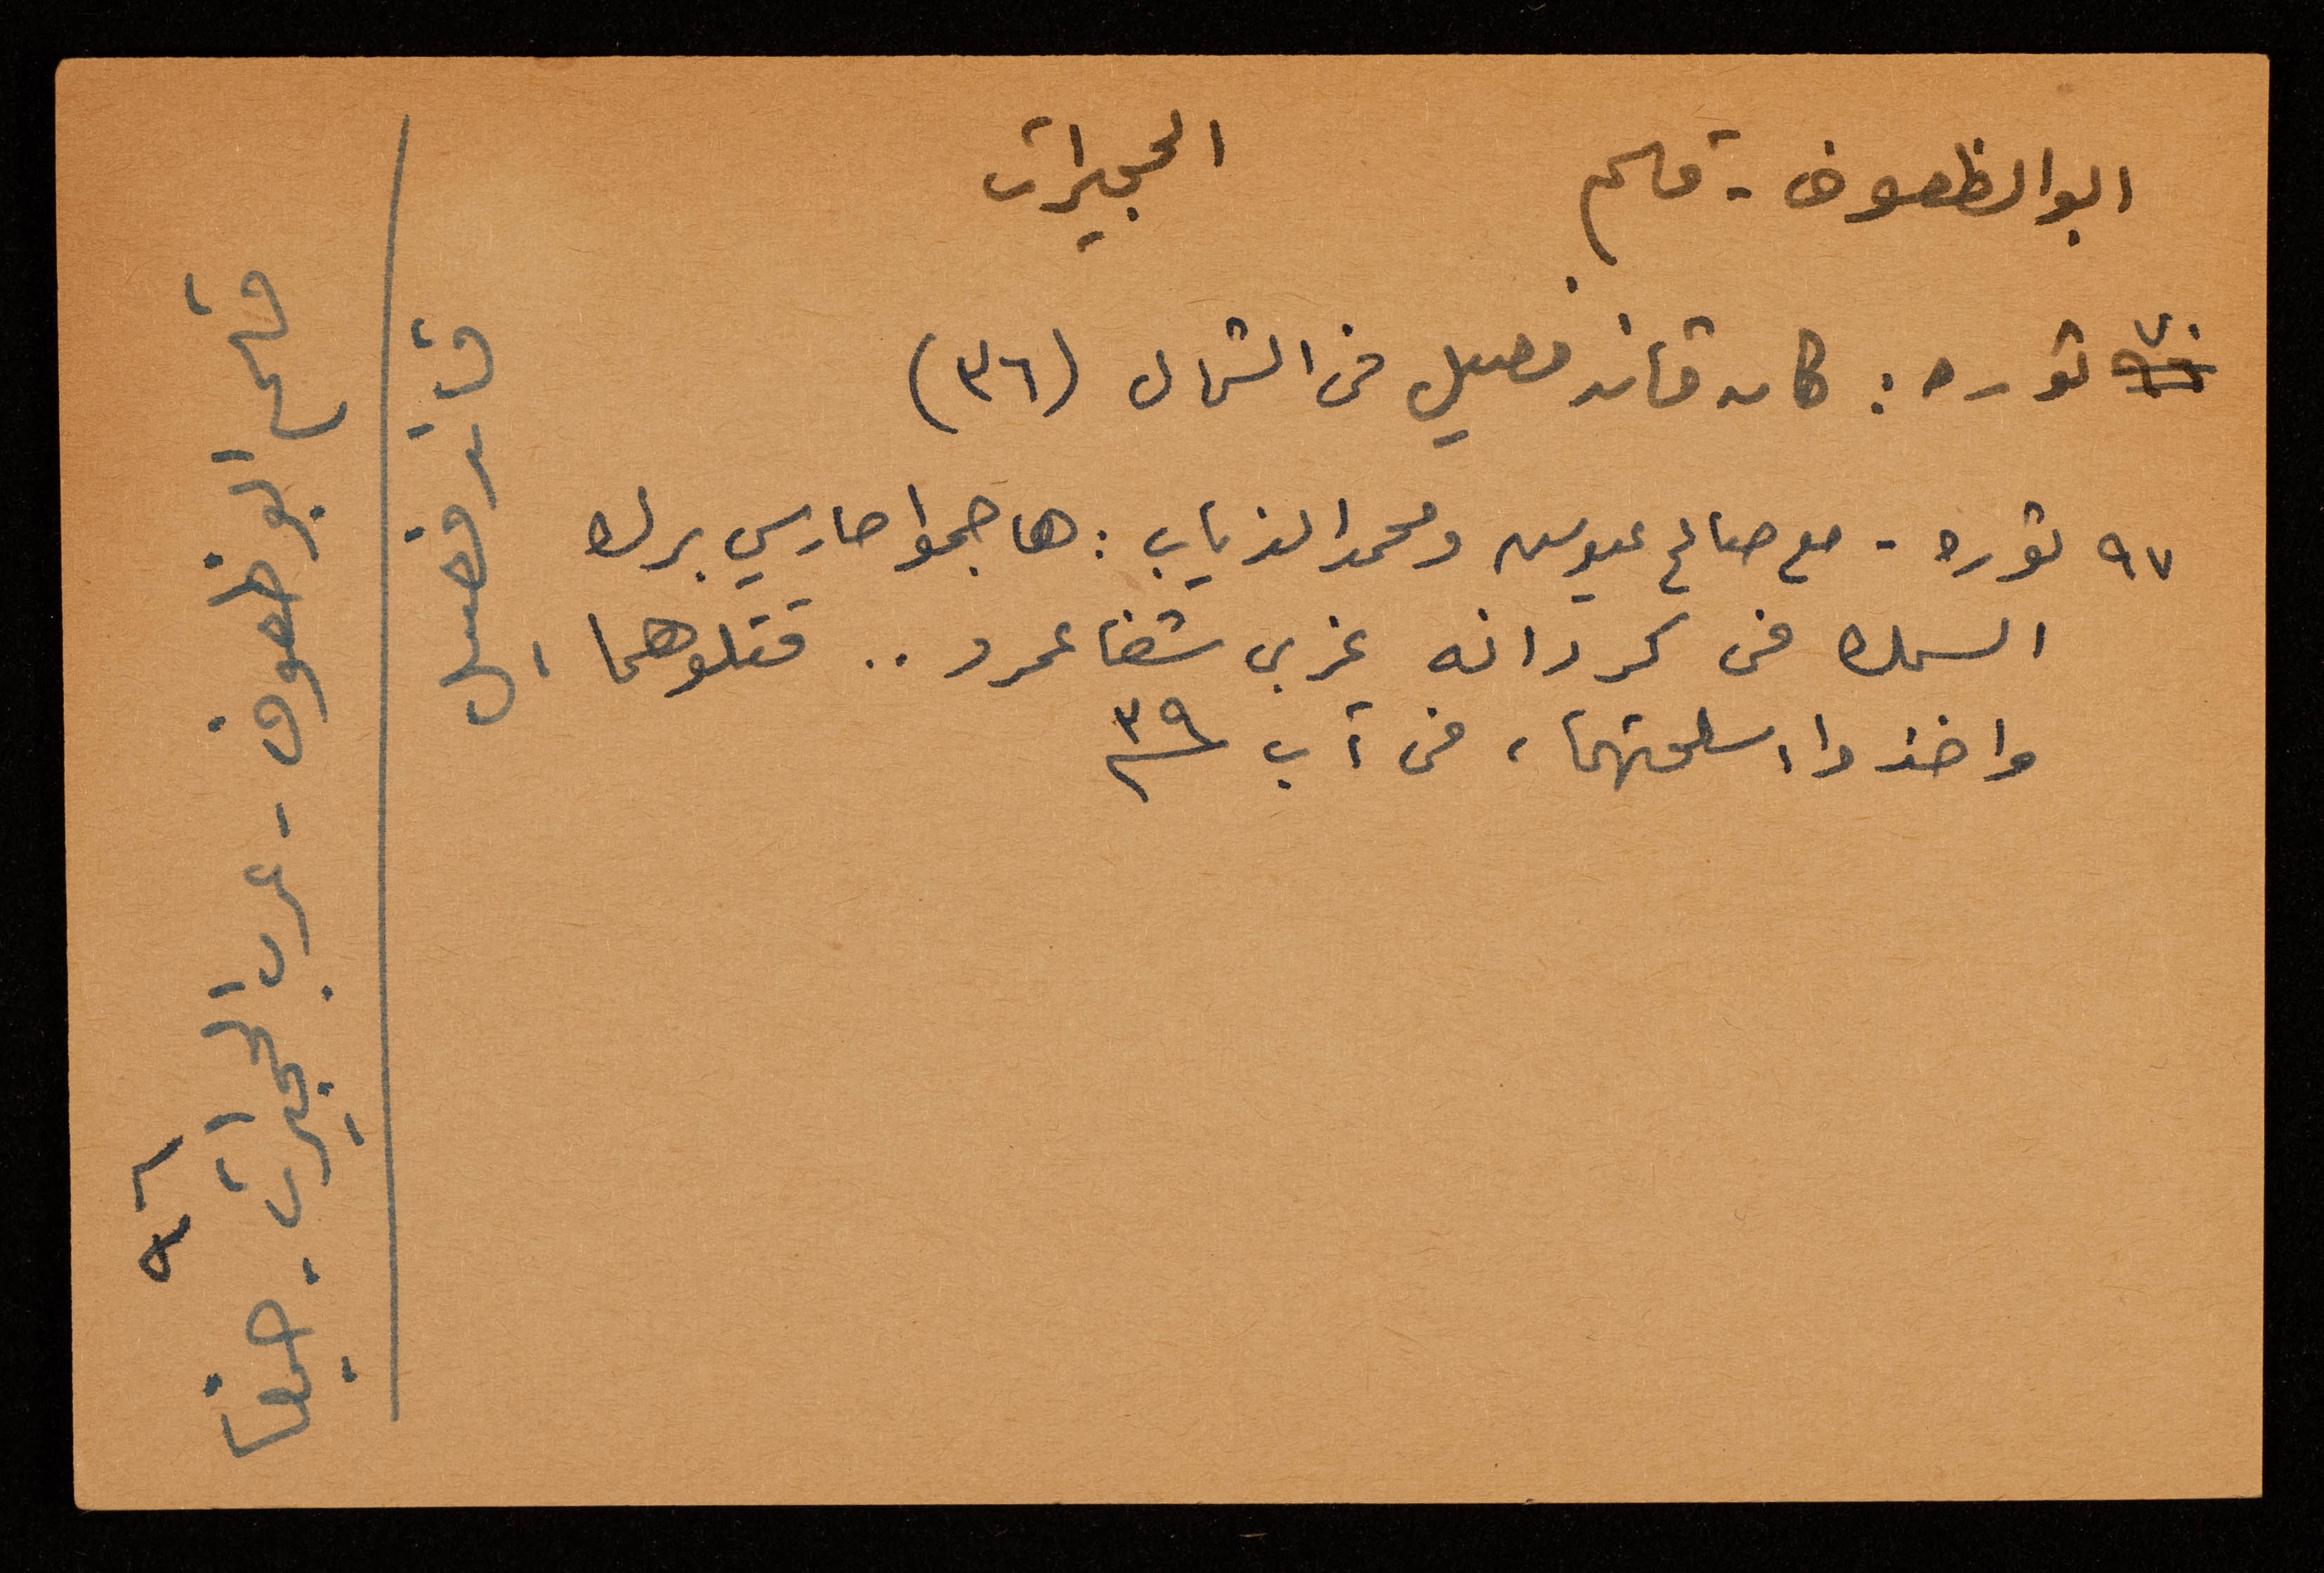 ابو الظعوف - قاسم
الحجيرات
٧٠ ثوره : كان قائد فصيل في الشمال (٣٦)
٩٧ ثوره - مع صالح عيوس ومحمد الذياب : هاجموا حارسي برك
السمك في كردانه غربي شفا عمرو .. قتلوهما
واخذوا اسلحتهما ، في آب ٣٩
قائد فصيل
قاسم ابو ظعوف - عرب الحجيرات - حيفا
٩٦